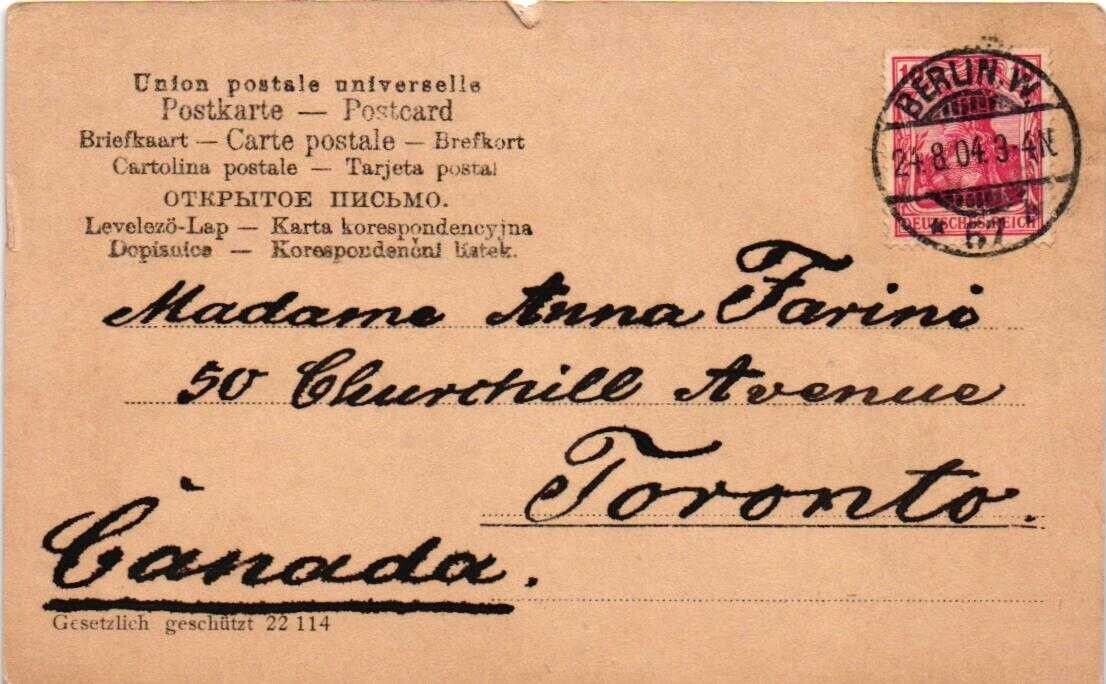 Union postale universelle
Postkarte — Postcard
Briefkaart — Carte postale — Brefkort
Cartolina postale — Tarjeta postal
ОТКРЫТОЕ ПИСЬМО.
Levelező-Lap — Karta korespondencyjna
Dopisnice — Korespondenční lístek.
BERLIN.W.
24.8.04.3-4N
* 57
DEUTSCHES REICH
Madame Anna Farini
50 Churchill Avenue
Toronto.
Canada.
Gesetzlich geschützt 22 114